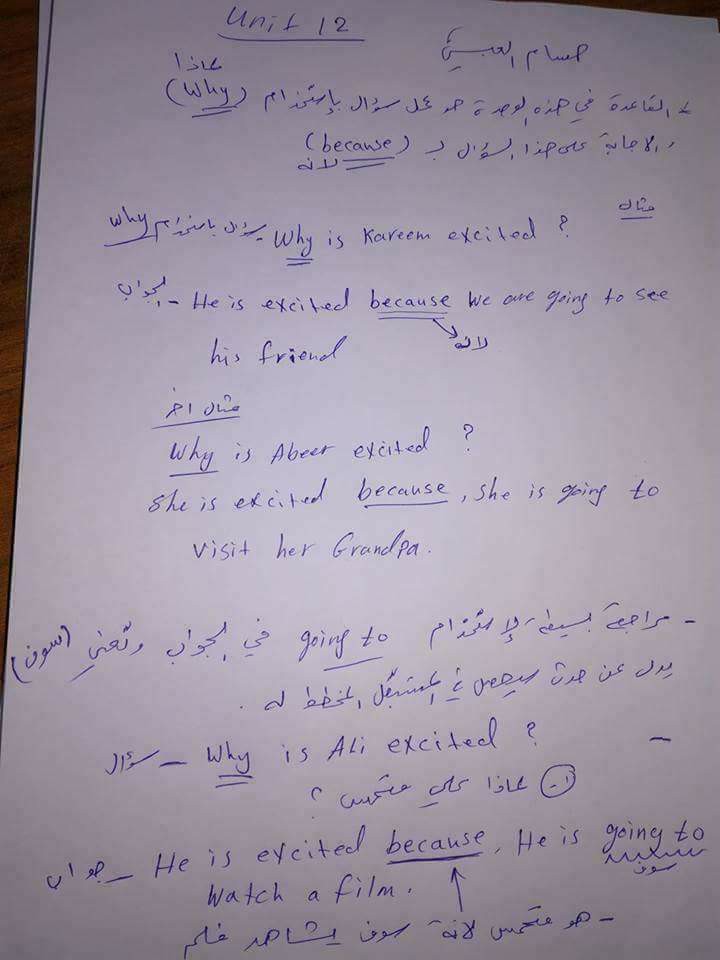 Unit 12
حسام العبيدي
لماذا
- القاعدة في هذه الوحدة هو عمل سؤال بإستخدام (Why)
والاجابة على هذا السؤال بـ (because)
لانه
مثال
سؤال باستخدام why Why is Kareem excited ?
الجواب - He is excited because we are going to see
لانه
his friend
مثال اخر
Why is Abeer excited ?
She is excited because, She is going to
visit her Grandpa.
- مراجعة بسيطة لإستخدام going to في الجواب وتعني (سوف)
يدل عن حدث سيحصل في المستقبل المخطط له .
سؤال - Why is Ali excited ? -
لماذا علي متحمس ؟
جواب - He is excited because, He is going to
سوف
Watch a film.
- هو متحمس لانة سوف يشاهد فلم